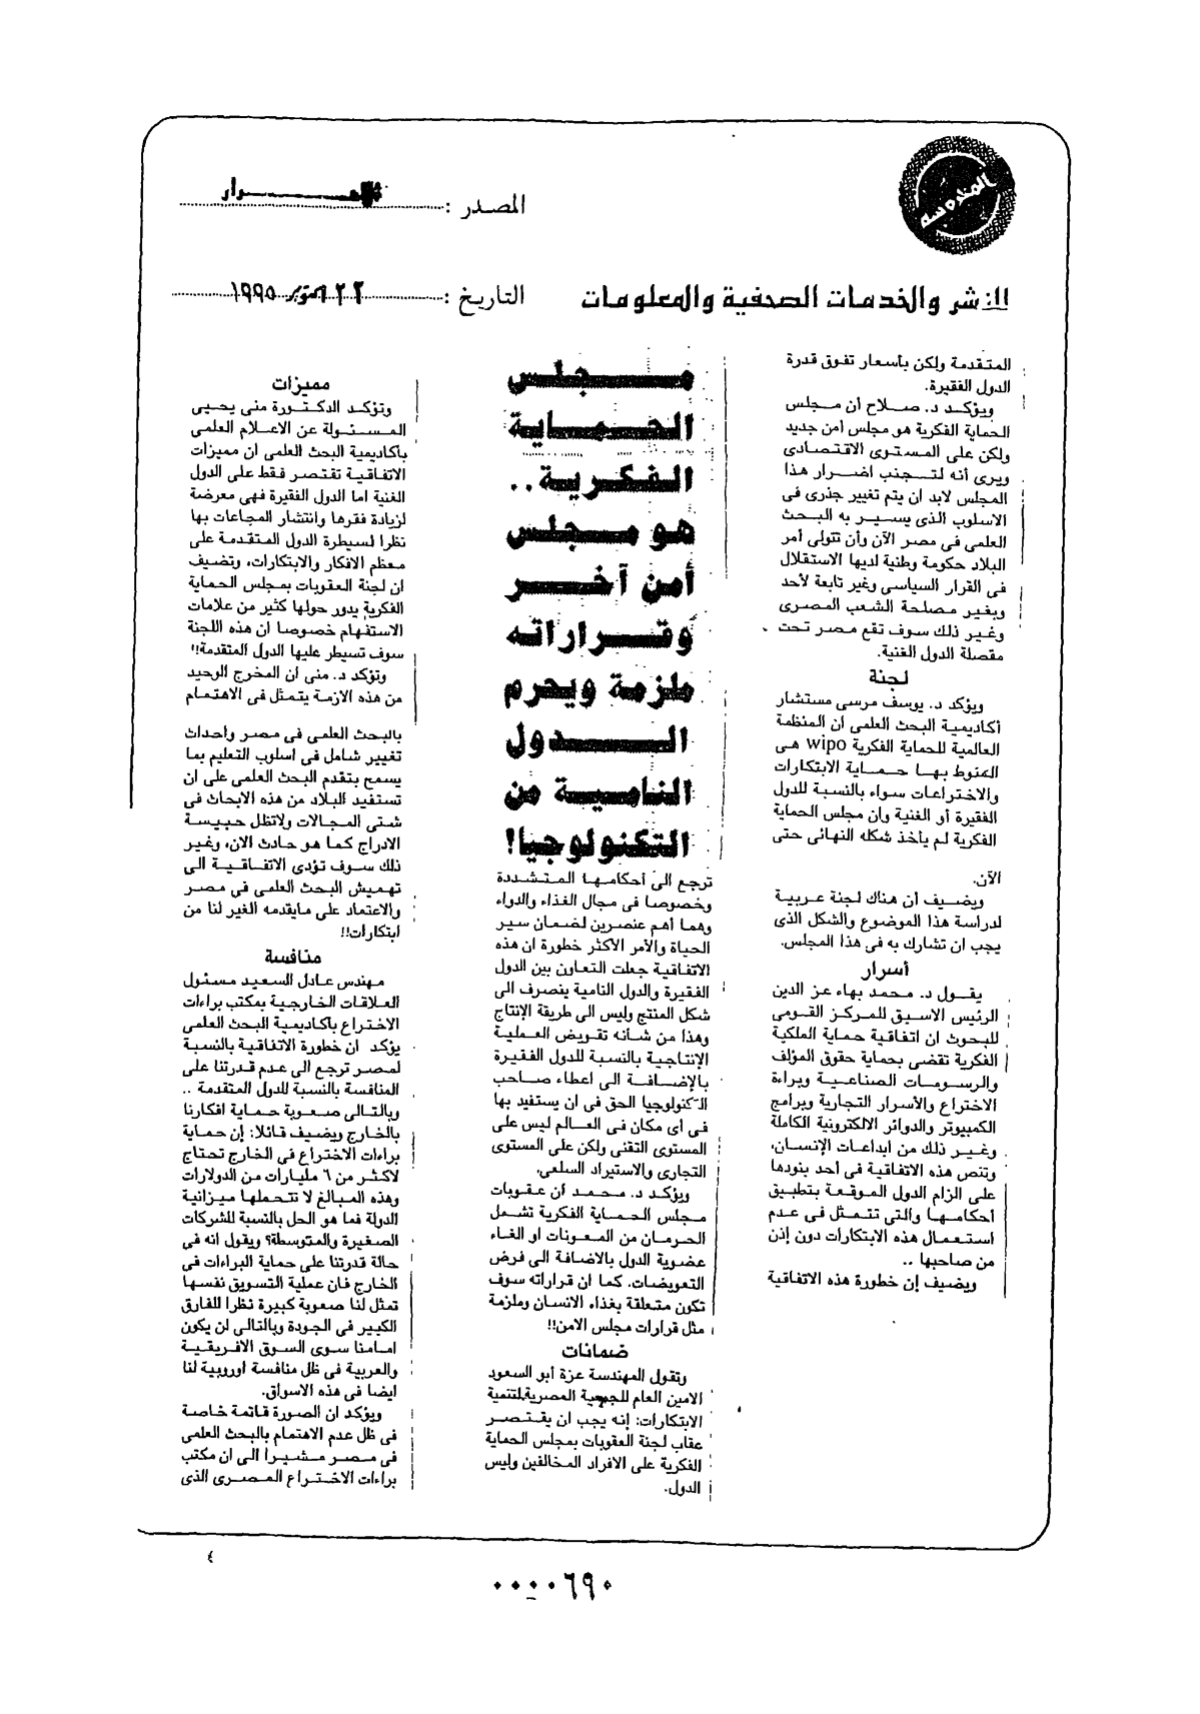 المصدر :
للنشر والخدمات الصحفية والمعلومات
التاريخ : ٢٢ اكتوبر ١٩٩٥
المتقدمة ولكن بأسعار تفوق قدرة
الدول الفقيرة.
ويؤكد د. صلاح أن مجلس
الحماية الفكرية هو مجلس أمن جديد
ولكن على المستوى الاقتصادى
ويرى أنه لتجنب اضرار هذا
المجلس لابد ان يتم تغيير جذرى فى
الاسلوب الذى يسير به البحث
العلمى فى مصر الآن وأن تتولى أمر
البلاد حكومة وطنية لديها الاستقلال
فى القرار السياسى وغير تابعة لأحد
وبغير مصلحة الشعب المصرى
وغير ذلك سوف تقع مصر تحت
مقصلة الدول الغنية.
لجنة
ويؤكد د. يوسف مرسى مستشار
أكاديمية البحث العلمى ان المنظمة
العالمية للحماية الفكرية wipo هى
المنوط بها حماية الابتكارات
والاختراعات سواء بالنسبة للدول
الفقيرة أو الغنية وان مجلس الحماية
الفكرية لم يأخذ شكله النهائى حتى
الآن.
ويضيف أن هناك لجنة عربية
لدراسة هذا الموضوع والشكل الذى
يجب ان تشارك به فى هذا المجلس.
أسرار
يقول د. محمد بهاء عز الدين
الرئيس الاسبق للمركز القومى
للبحوث ان اتفاقية حماية الملكية
الفكرية تقضى بحماية حقوق المؤلف
والرسومات الصناعية وبراءة
الاختراع والأسرار التجارية وبرامج
الكمبيوتر والدوائر الالكترونية الكاملة
وغير ذلك من ابداعات الإنسان،
وتنص هذه الاتفاقية فى أحد بنودها
على الزام الدول الموقعة بتطبيق
أحكامها والتى تتمثل فى عدم
استعمال هذه الابتكارات دون إذن
من صاحبها ..
ويضيف إن خطورة هذه الاتفاقية
مجلس
الحماية
الفكرية ..
هو مجلس
أمن آخر
وقراراته
ملزمة ويحرم
الدول
النامية من
التكنولوجيا!
ترجع الى أحكامها المتشددة
وخصوصا فى مجال الغذاء والدواء
وهما أهم عنصرين لضمان سير
الحياة والأمر الأكثر خطورة ان هذه
الاتفاقية جعلت التعاون بين الدول
الفقيرة والدول النامية ينصرف الى
شكل المنتج وليس الى طريقة الإنتاج
وهذا من شانه تقويض العملية
الإنتاجية بالنسبة للدول الفقيرة
بالإضافة الى اعطاء صاحب
التكنولوجيا الحق فى ان يستفيد بها
فى أى مكان فى العالم ليس على
المستوى التقنى ولكن على المستوى
التجارى والاستيراد السلعى.
ويؤكد د. محمد أن عقوبات
مجلس الحماية الفكرية تشمل
الحرمان من المعونات او الغاء
عضوية الدول بالاضافة الى فرض
التعويضات. كما ان قراراته سوف
تكون متعلقة بغذاء الانسان وملزمة
مثل قرارات مجلس الامن!!
ضمانات
وتقول المهندسة عزة أبو السعود
الامين العام للجمعية المصرية لتنمية
الابتكارات: إنه يجب ان يقتصر
عقاب لجنة العقوبات بمجلس الحماية
الفكرية على الافراد المخالفين وليس
الدول.
مميزات
وتؤكد الدكتورة منى يحيى
المسئولة عن الاعلام العلمى
بأكاديمية البحث العلمى ان مميزات
الاتفاقية تقتصر فقط على الدول
الغنية اما الدول الفقيرة فهى معرضة
لزيادة فقرها وانتشار المجاعات بها
نظرا لسيطرة الدول المتقدمة على
معظم الافكار والابتكارات، وتضيف
ان لجنة العقوبات بمجلس الحماية
الفكرية يدور حولها كثير من علامات
الاستفهام خصوصا ان هذه اللجنة
سوف تسيطر عليها الدول المتقدمة!!
وتؤكد د. منى ان المخرج الوحيد
من هذه الازمة يتمثل فى الاهتمام
بالبحث العلمى فى مصر واحداث
تغيير شامل فى اسلوب التعليم بما
يسمح بتقدم البحث العلمى على ان
تستفيد البلاد من هذه الابحاث فى
شتى المجالات ولاتظل حبيسة
الادراج كما هو حادث الان، وغير
ذلك سوف تؤدى الاتفاقية الى
تهميش البحث العلمى فى مصر
والاعتماد على مايقدمه الغير لنا من
ابتكارات!!
منافسة
مهندس عادل السعيد مسئول
العلاقات الخارجية بمكتب براءات
الاختراع بأكاديمية البحث العلمى
يؤكد ان خطورة الاتفاقية بالنسبة
لمصر ترجع الى عدم قدرتنا على
المنافسة بالنسبة للدول المتقدمة ..
وبالتالى صعوبة حماية افكارنا
بالخارج ويضيف قائلا: إن حماية
براءات الاختراع فى الخارج تحتاج
لاكثر من ٦ مليارات من الدولارات
وهذه المبالغ لا تتحملها ميزانية
الدولة فما هو الحل بالنسبة للشركات
الصغيرة والمتوسطة؟ ويقول انه فى
حالة قدرتنا على حماية البراءات فى
الخارج فان عملية التسويق نفسها
تمثل لنا صعوبة كبيرة نظرا للفارق
الكبير فى الجودة وبالتالى لن يكون
امامنا سوى السوق الافريقية
والعربية فى ظل منافسة اوروبية لنا
ايضا فى هذه الاسواق.
ويؤكد ان الصورة قاتمة خاصة
فى ظل عدم الاهتمام بالبحث العلمى
فى مصر مشيرا الى ان مكتب
براءات الاختراع المصرى الذى
٤
٠٠٠٠٦٩٠